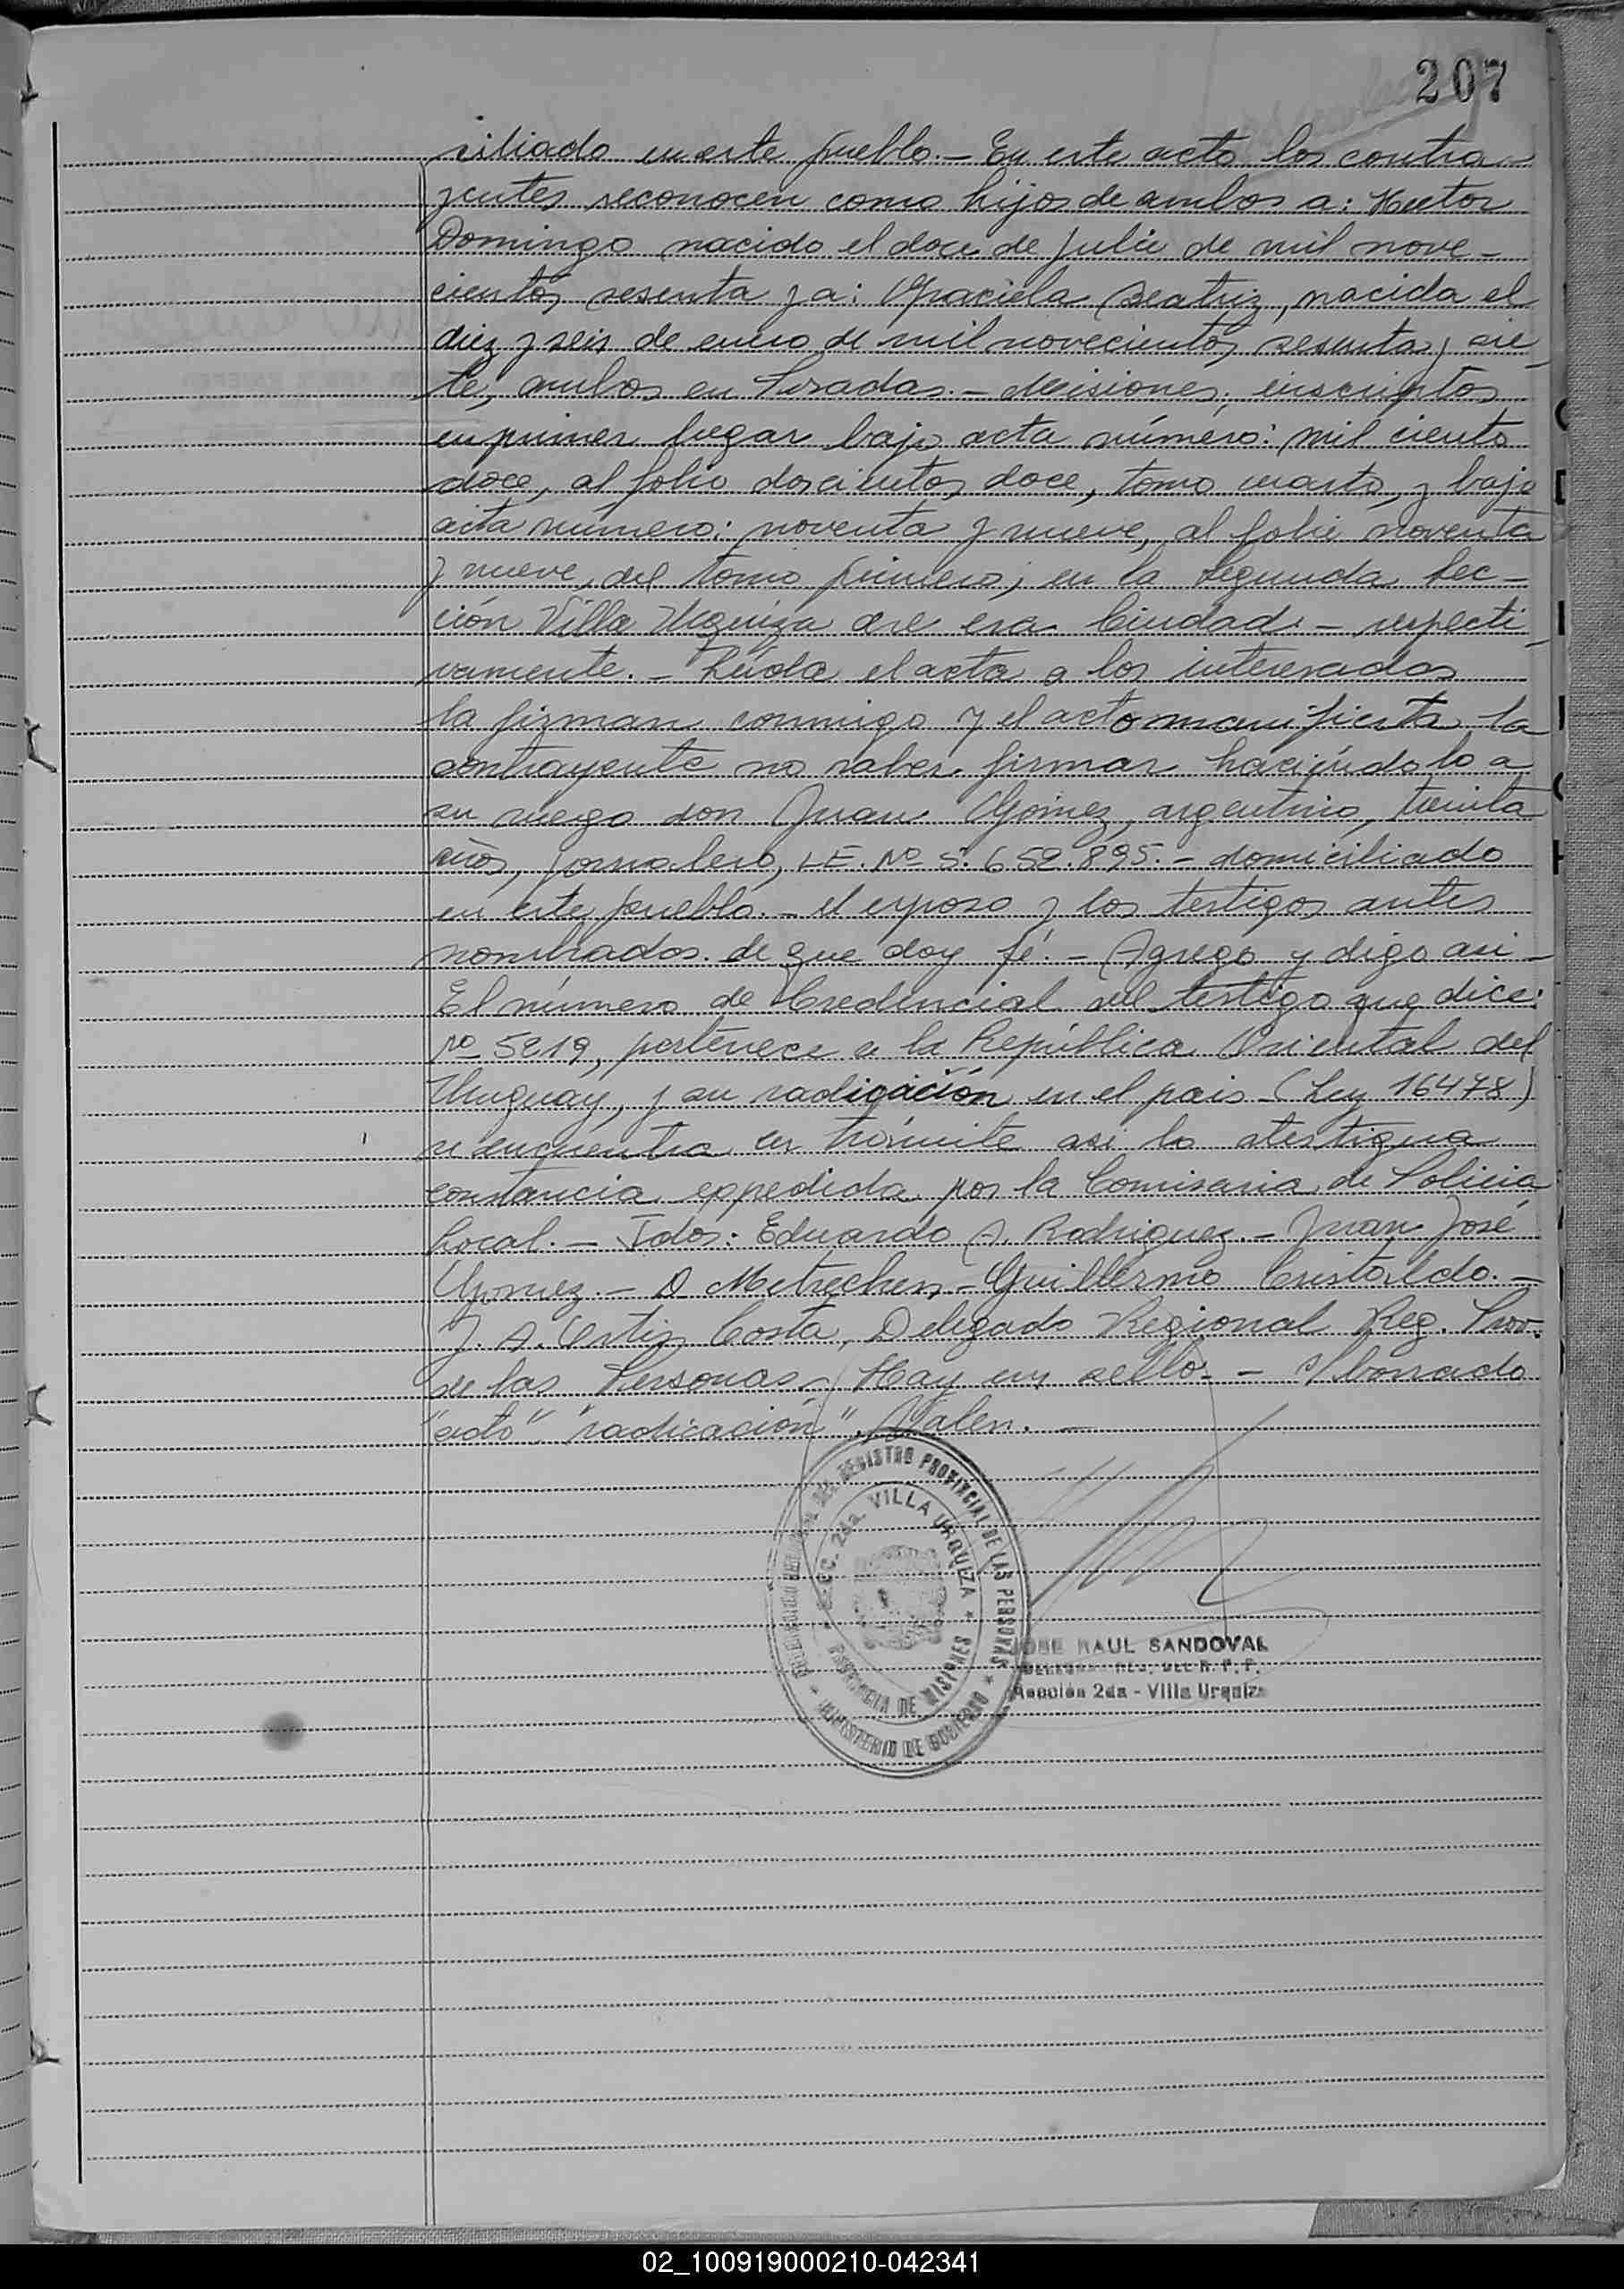 207
ciliado en este pueblo.- En este acto los contra-
yentes reconocen como hijos de ambos a: Hector
Domingo nacido el doce de julio de mil nove-
cientos sesenta y a: Graciela Beatriz, nacida el
diez y seis de enero de mil novecientos sesenta y sie-
te, ambos en Posadas.- Misiones, inscriptos
en primer lugar bajo acta número: mil ciento
doce, al folio doscientos doce, tomo cuarto, y bajo
acta número: noventa y nueve, al folio noventa
y nueve, del tomo primero, en la Segunda Sec-
ción Villa Urquiza de esa Ciudad.- respecti-
vamente.- Leída el acta a los interesados
la firman conmigo y el acto manifiesta la
contrayente no saber firmar haciéndolo a
su ruego don Juan Gómez, argentino, treinta
años, jornalero, LE. Nº 5.652.895.- domiciliado
en este pueblo.- el esposo y los testigos antes
nombrados. de que doy fé.- Agrego y digo asi-
El número de Credencial del testigo que dice:
Nº 5219, pertenece a la República Oriental del
Uruguay, y su radicación en el pais - (Ley 16478)
se encuentra en trámite asi lo atestigua
constancia expedida por la Comisaria de Policia
Local.- Fdos: Eduardo A. Rodriguez.- Juan José
Gomez.- D. Metrechen.- Guillermo Cristaldo.-
J. A. Ortiz Costa, Delegado Regional Reg. Prov.
de las Personas.- Hay un sello.- s/ borrado
"acto" "radicación". Valen.-
REGISTRO PROVINCIAL DE LAS PERSONAS
SECC. 2da. VILLA URQUIZA
PROVINCIA DE MISIONES
MINISTERIO DE GOBIERNO
JOSE RAUL SANDOVAL
DELEGADO REG. DEL R. P. P.
Sección 2da - Villa Urquiza
02_100919000210-042341